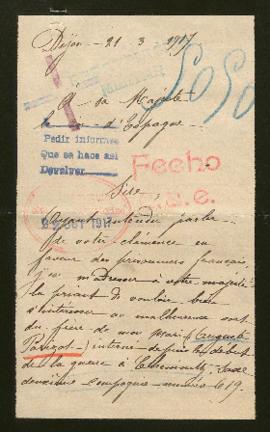 Dijon - 21 - 3 - 1917
5050
A sa Majesté
le roi d'Espagne -
Pedir informes
Que se hace así
Devolver
Fecho
Sire,
s.e.
Ayant entendu parler
OCT 1917
de votre clémence en
faveur des prisonniers français,
j'ose m'adresser à votre majesté
la priant de vouloir bien
s'intéresser au malheureux sort
du frère de mon mari (Auguste
Parizot -) interné depuis le début
de la guerre à Saxe
deuxième compagnie - numéro 619.